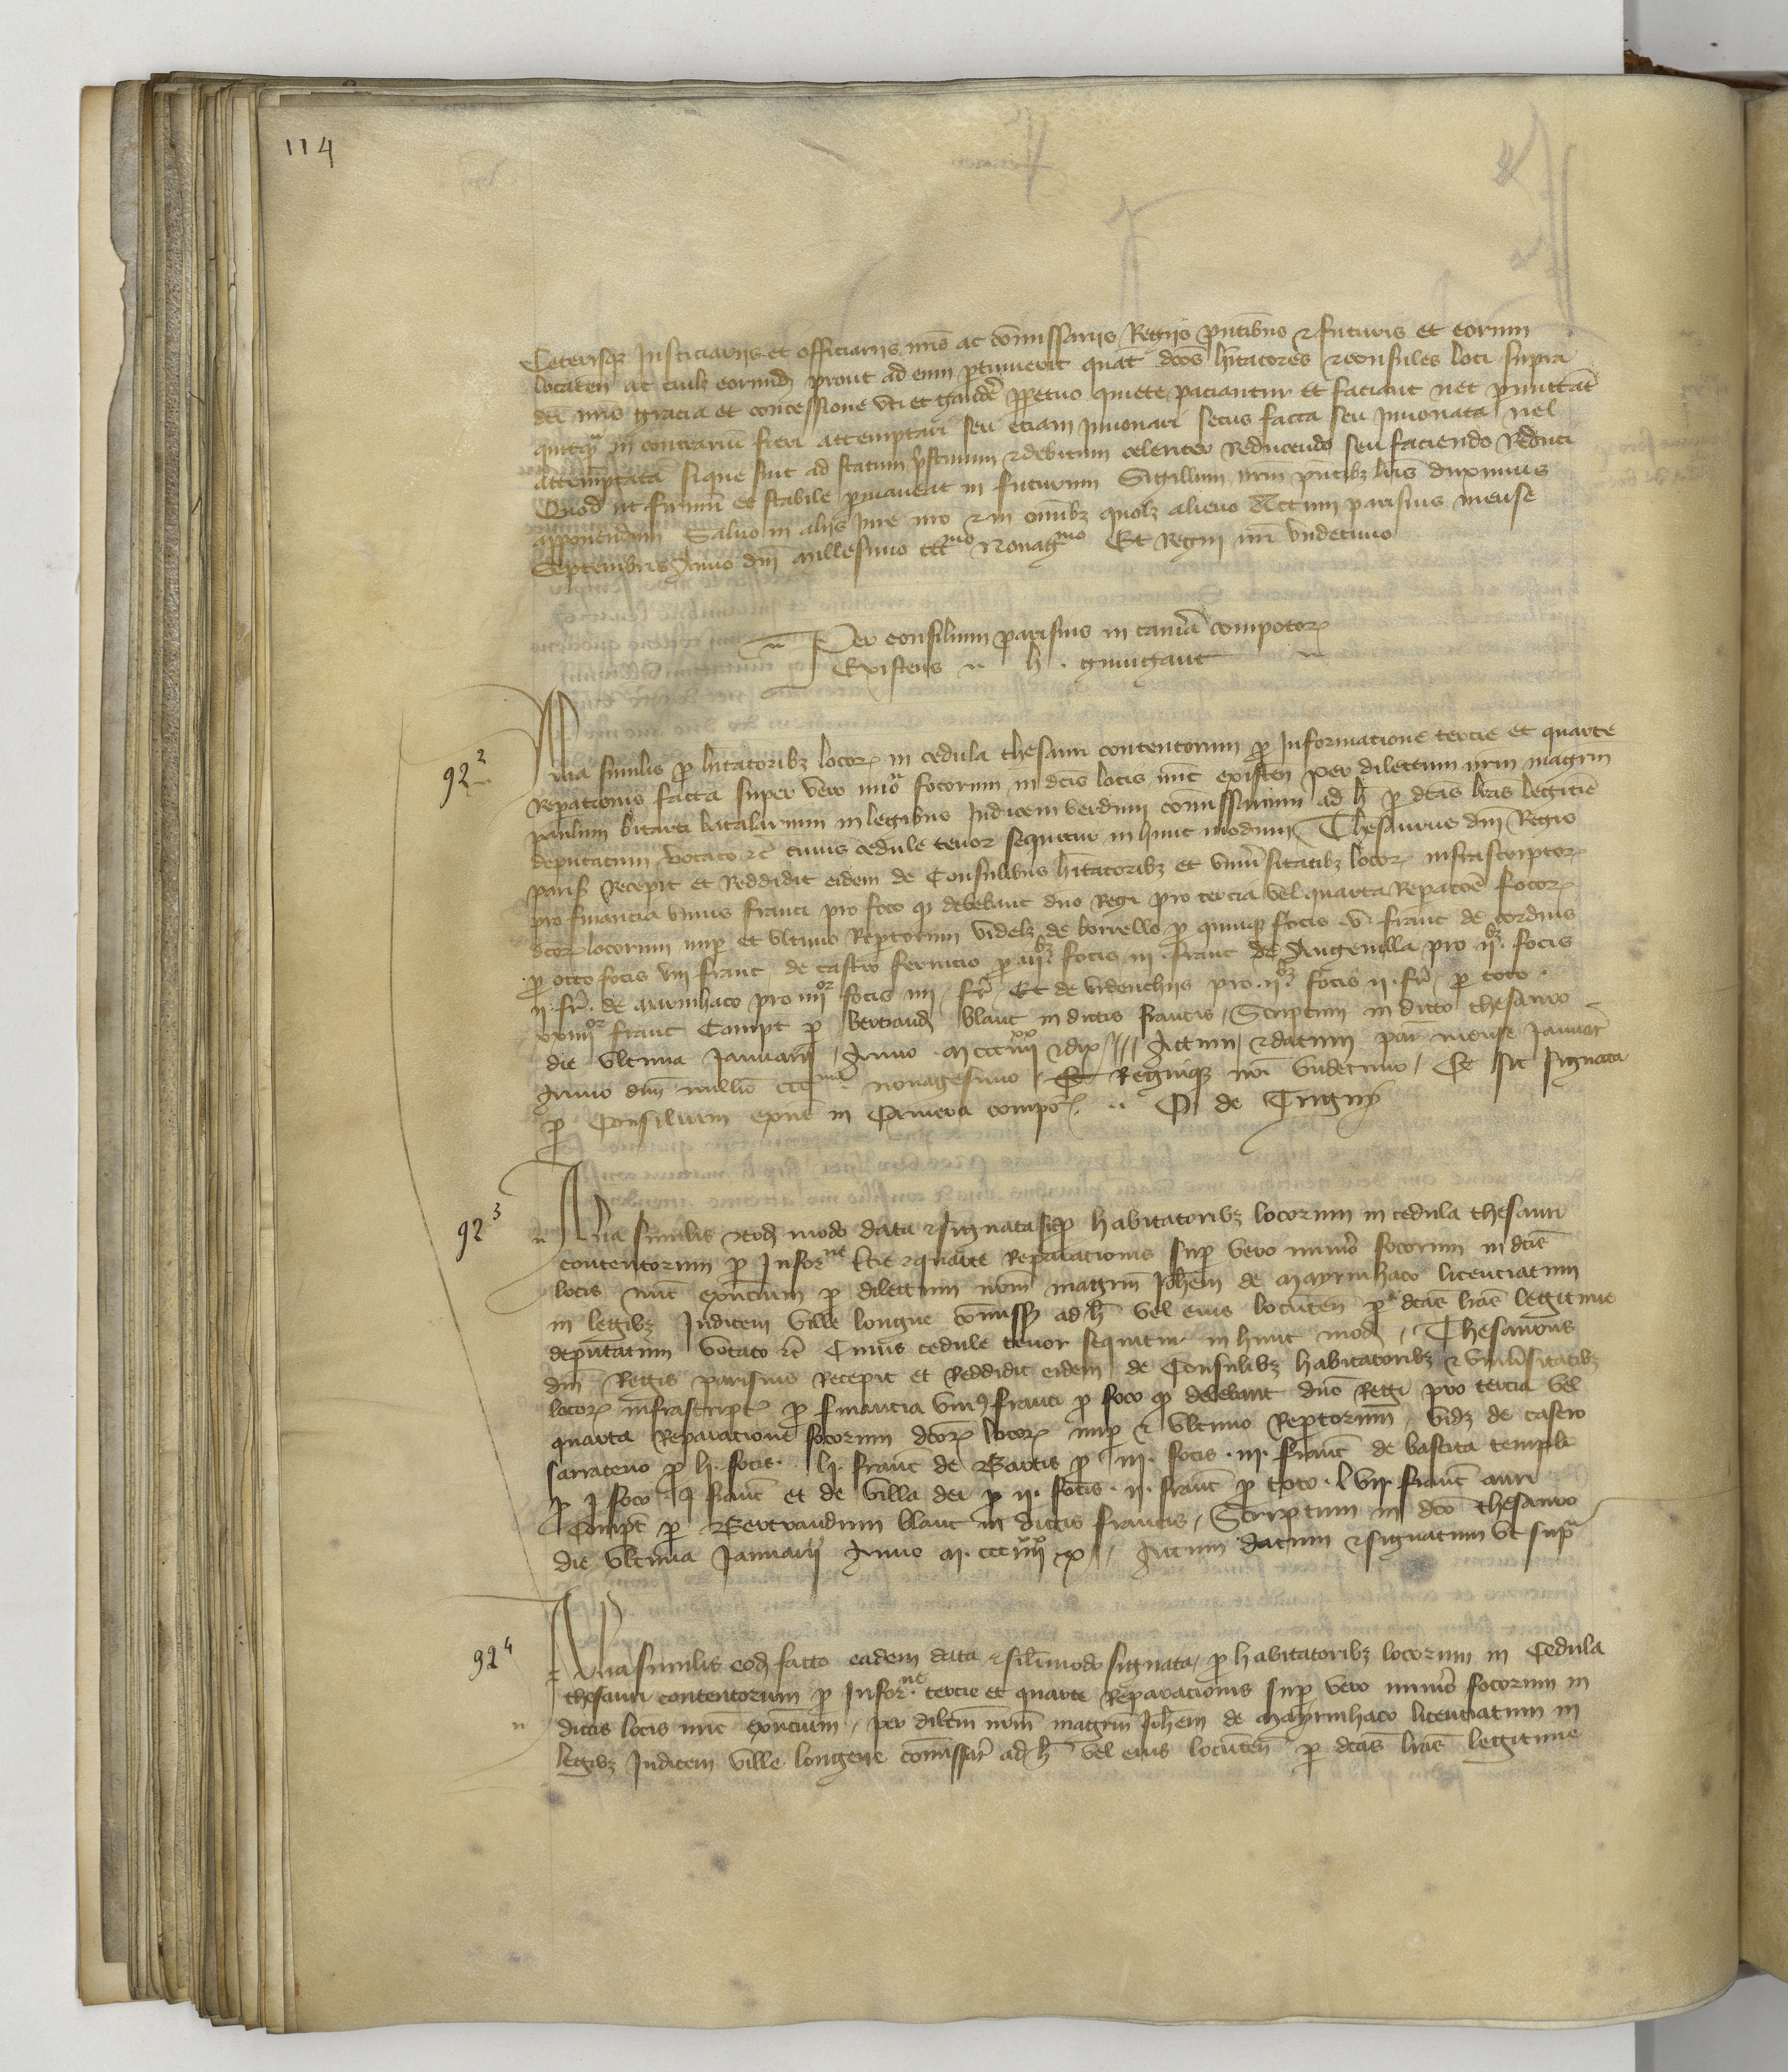 114
Ceterisque Justiciariis et officiariis nr̄is ac com̄issariis Regiis pn̄tibus et futuris et eorum
locaten̄ ac cuil; eorumd; prout ad eum ptinuerit quat dc̄os hītatores et consules loci supra
dc̄i nr̄is gracia et concessione uti et gaudē ppetuo quiete paciantur et faciant nec pmittāt
quitq̄ in contrariū fieri attemptari seu etiam Jnnouari secus facta seu Jnnouata uel
attemptata sique sint ad statum pr̄stinum et debitum celeriter Reducendo seu faciendo Reduci
Quod ut firmū et stabile pmaneat in futurum Sigillum nr̄m pn̄tib; lr̄is duximus
apponendum Saluo in aliis Jure nr̄o et in om̄ib; quol; alieno Actum parisius mense
Septembris Anno dn̄i millesimo ccc^mo Nonag^mo Et Regni nr̄i undecimo
Per consilium parisius in cam̄a compotor;
Existens h. guingant
92²
Alia similis p hītatorib; locor; in cedula thesauri contentorum p Informatione tercie et quarte
Reparationis facta super vero nūo focorum in dc̄is locis nūc existen̄ per dilectum nr̄m magr̄m
paulum bacalarium in legibus Judicem verduni com̄issarium ad h̄ p dc̄as lr̄as legitīe
deputatum Vocato etc̄ cuius cedule tenor sequitur in hunc modum Thesaurus dn̄i Regis
paris̄ Recepit et Reddidit eidem de Consulibus hītatorib; et Uniu̅sitatib; locor; infrascriptor;
pro financia unius franci pro foco q̄ debebant dn̄o Regi pro tercia vel quarta Reparaōe focor;
dc̄or; locorum nup et ultimo Reptorum Videl; de borrello p quinq; focis .v. franc̄ de cordius
p octo focis viii franc̄ de castro ferrucio p iii^b; focis iii franc̄ de Angenilla pro .ii^b; focis
ii. fr̄. de auriuhaco pro iiii^or focis iiii. fr̄. Et de videnchiis pro .ii^b; focis ii. fr̄. p toto.
xxiiii^or franc̄ Compt̄ p Bertrand; blanc in dictis francis, Scriptum in dicto thesauro
die ultima Januarii, Anno .m ccc iiii^xx et dix /// Actum, et datum par̄ mense Januar̄
Anno dn̄i mill̄io ccc^mo nonagesimo, Et Regnique nr̄i Undecimo, Et sic signata
p Consilium exn̄s in Camera compor;. .. P. de Trigny
92³
Alia similis eod; modo data et signata sup habitatorib; locorum in cedula thesauri
contentorum p Infor^ne tc̄ie et quarte Reparacionis sup vero num̄o focorum in dc̄is
locis nūc exn̄cium p dilectum nr̄m magr̄m Joh̄em de Mayrinhaco licenciatum
in legib; Judicem ville longue com̄iss; ad h̄ vel eius locūten̄ p dc̄as lr̄as legitime
deputatum Vocato etc̄ Cuius cedule tenor sequitur in hunc mod;, Thesaurus
dn̄i Regis parisius Recepit et Reddidit eidem de Consulib; habitatorib; et Univ̄sitatib;
locor; infrascript; p financia unius franci p foco q̄ debebant dn̄o Regi pro tercia vel
quarta Reparatione focorum dc̄or; locor; nup et ultimo Reptorum, vid; de castro
sarraceno p li. focis. li. franc̄ de Bartis p iii. focis .iii. franc̄ de bastita templi
p j foco j franc̄ et de villa dei p ii. focis. ii. franc̄ p toto. lvii. franc̄ auri
Compt̄ p Bertrandum blanc in dictis francis, Scriptum in dc̄o thesauro
die ultima Januarii Anno m. ccc iiii^xx x // Actum datum et signatum ut sup^a
92⁴
Alia similis eod; facto eadem data et sil̄imodo signata, p habitatorib; locorum in Cedula
thesauri contentorum p Infor^ne tercie et quarte Reparacionis sup vero num̄o focorum in
dictis locis nūc exn̄cium, per dilc̄m nr̄m magr̄m Joh̄em de Mayrinhaco licenciatum in
legib; Judicem ville longue com̄issar̄ ad h̄ vel eius locūten̄ p dc̄as lr̄as legitime